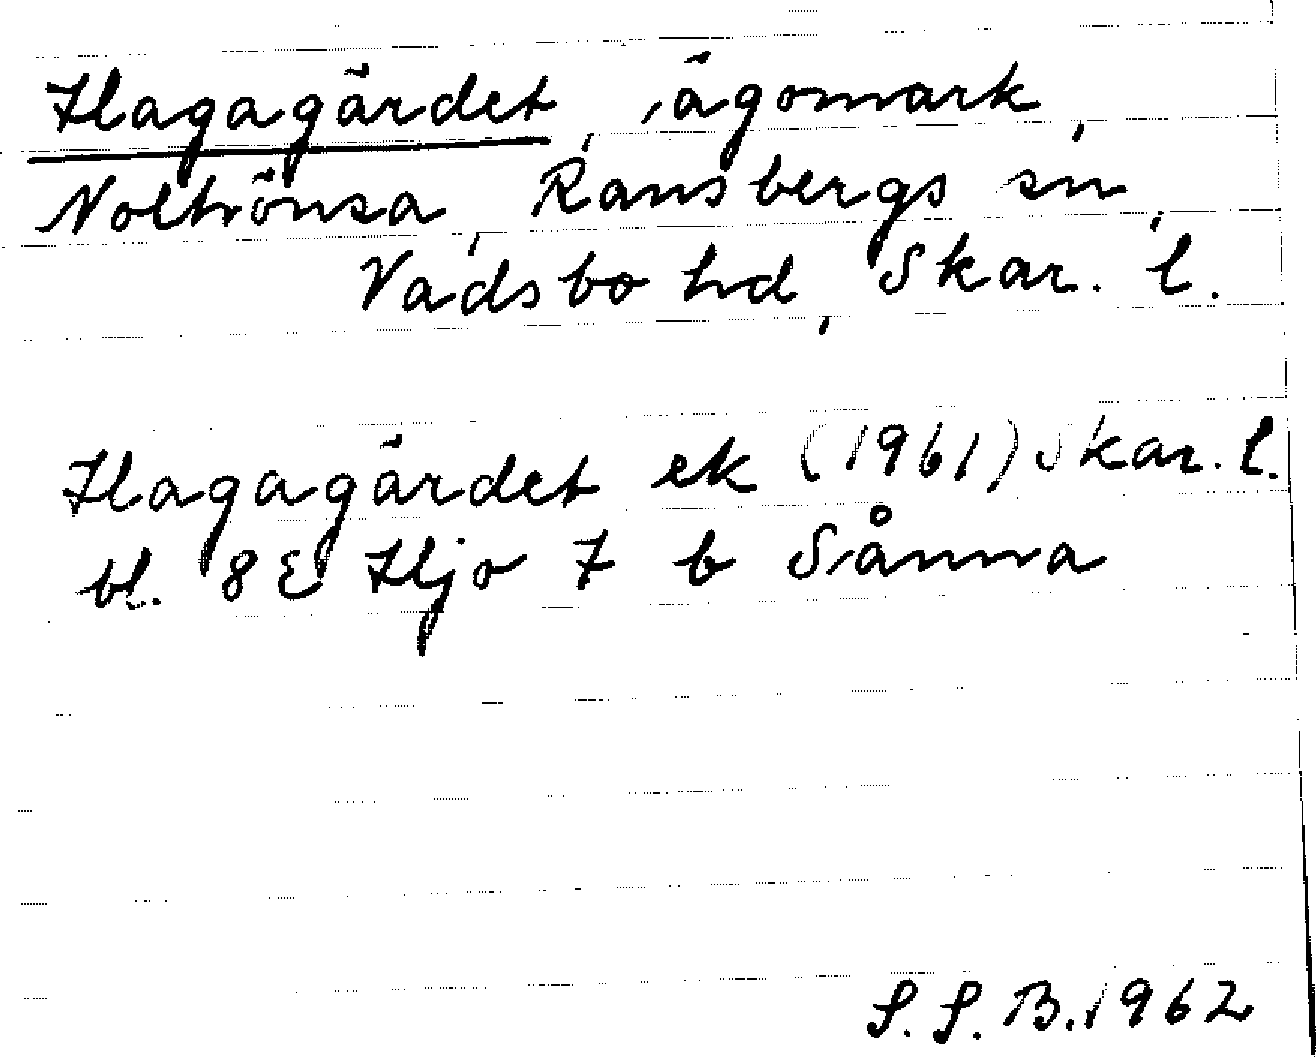 Hagagärdet, ägomark,
Noltrönsa, Ransbergs sn,
Vadsbo hd, Skar. l.
Hagagärdet ek (1961) Skar. l.
bl. 8 E Hjo 7 b Sånna
S. S. B. 1962